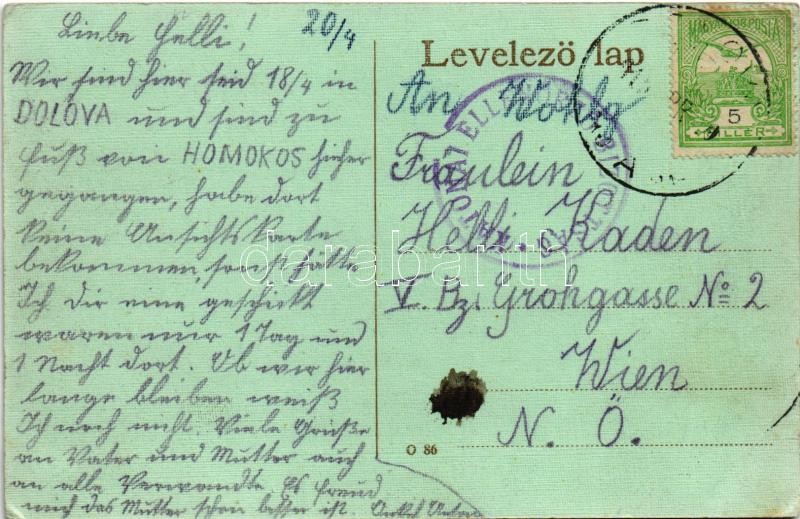 Liebe Helli! 20/4
Wir sind hier seid 18/4 in
DOLOVA und sind zu
fuß von HOMOKOS hieher
gegangen, habe dort
keine Ansichtskarte
bekommen, sonst hätte
Ich Dir eine geschickt
waren nur 1 Tag und
1 Nacht dort. Ob wir hier
lange bleiben weiß
Ich noch nicht. Viele Grüße
an Vater und Mutter auch
an alle Verwandte. Es freud
mich das Mutter schon besser ist. Onkel Anton
Levelező lap
An Wohlg
Fräulein
Helli Kaden
V. Bz. Grohgasse No 2
Wien
N. Ö.
O 86
MAGYAR KIR. POSTA
5
FILLÉR
darabanth